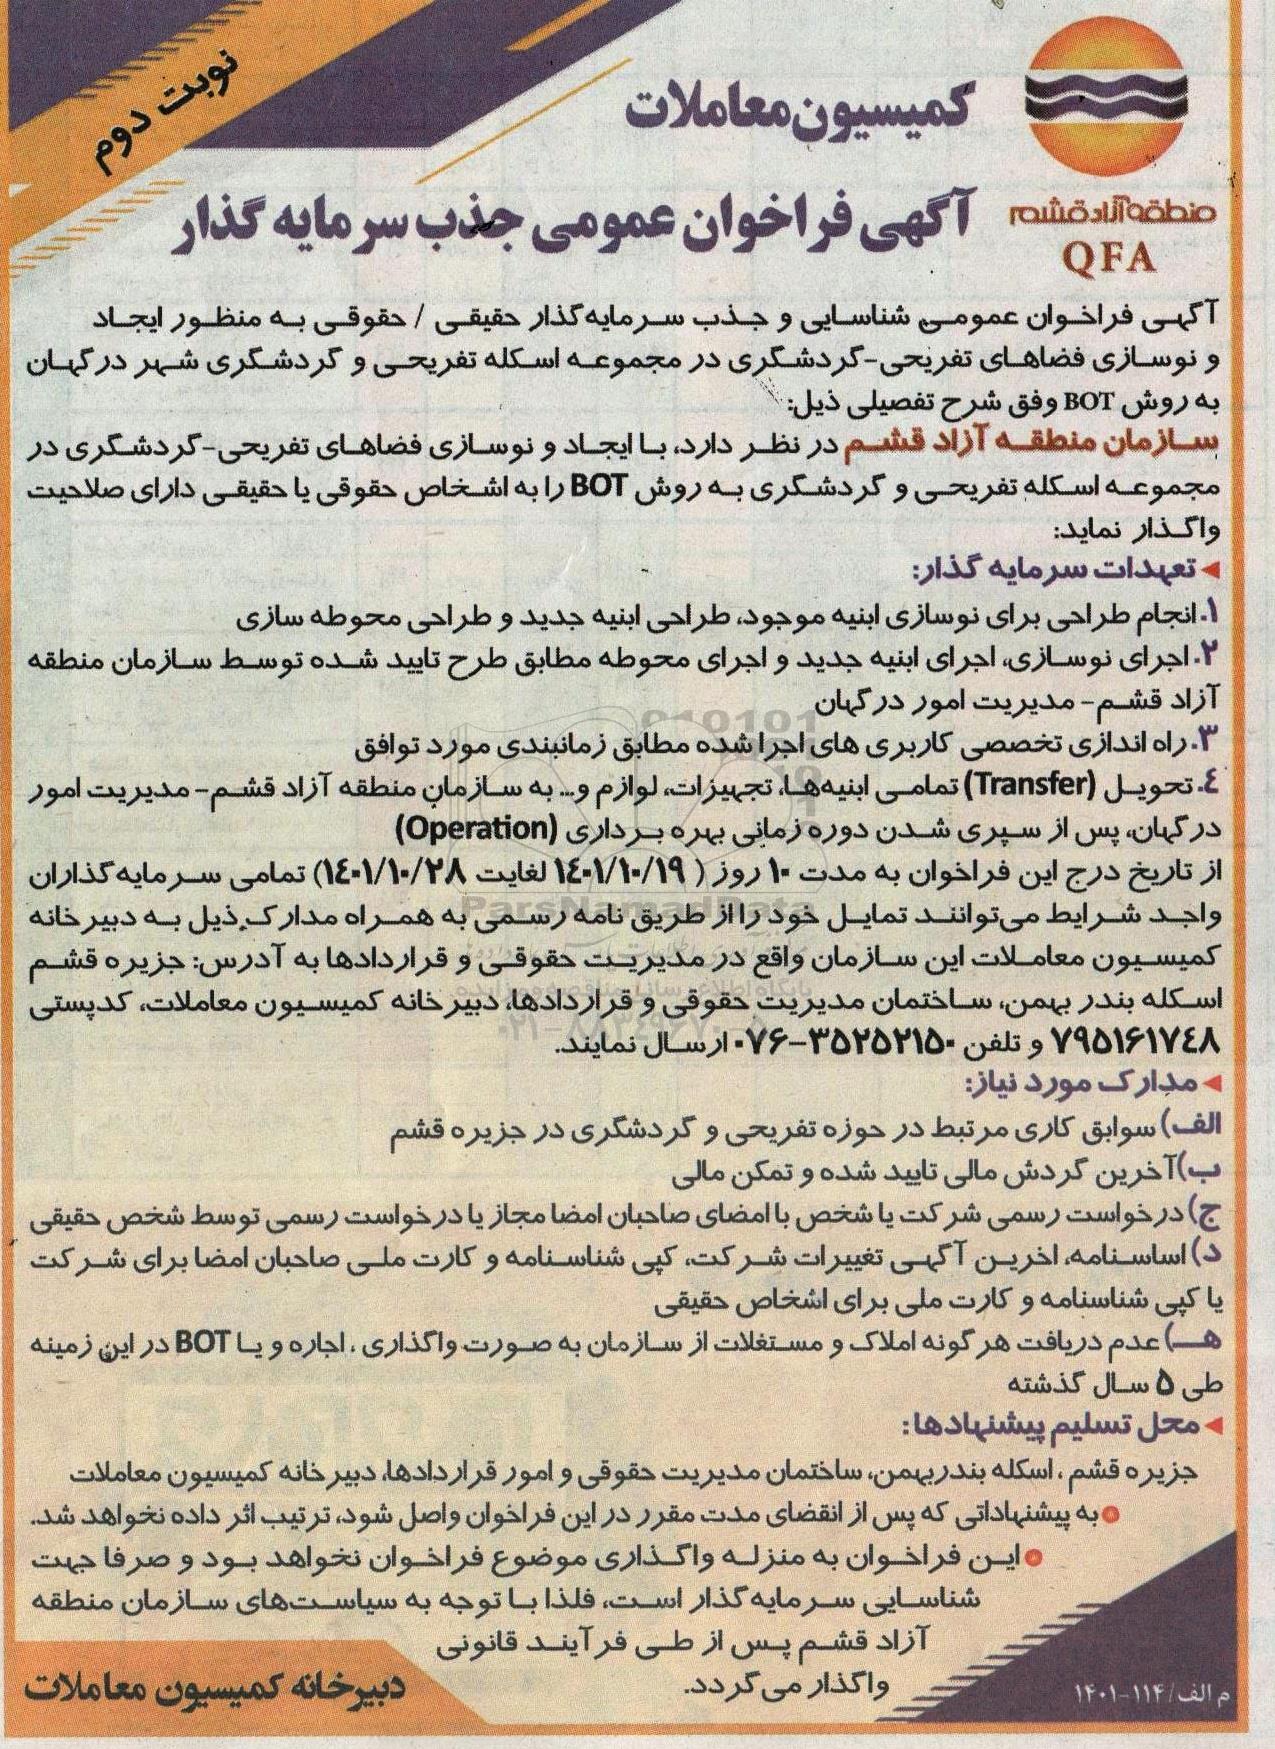 نوبت دوم
کمیسیون معاملات
آگهی فراخوان عمومی جذب سرمایه گذار
منطقه آزاد قشم
QFA
آگهی فراخوان عمومی شناسایی و جذب سرمایه‌گذار حقیقی / حقوقی به منظور ایجاد
و نوسازی فضاهای تفریحی-گردشگری در مجموعه اسکله تفریحی و گردشگری شهر درگهان
به روش BOT وفق شرح تفصیلی ذیل:
سازمان منطقه آزاد قشم در نظر دارد، با ایجاد و نوسازی فضاهای تفریحی-گردشگری در
مجموعه اسکله تفریحی و گردشگری به روش BOT را به اشخاص حقوقی یا حقیقی دارای صلاحیت
واگذار نماید:
تعهدات سرمایه گذار:
۱. انجام طراحی برای نوسازی ابنیه موجود، طراحی ابنیه جدید و طراحی محوطه سازی
۲. اجرای نوسازی، اجرای ابنیه جدید و اجرای محوطه مطابق طرح تایید شده توسط سازمان منطقه
آزاد قشم- مدیریت امور درگهان
۳. راه اندازی تخصصی کاربری های اجرا شده مطابق زمانبندی مورد توافق
٤. تحویل (Transfer) تمامی ابنیه‌ها، تجهیزات، لوازم و... به سازمان منطقه آزاد قشم- مدیریت امور
درگهان، پس از سپری شدن دوره زمانی بهره برداری (Operation)
از تاریخ درج این فراخوان به مدت ۱۰ روز ( ۱٤۰۱/۱۰/۱۹ لغایت ۱٤۰۱/۱۰/۲۸) تمامی سرمایه‌گذاران
واجد شرایط می‌توانند تمایل خود را از طریق نامه رسمی به همراه مدارک ذیل به دبیرخانه
کمیسیون معاملات این سازمان واقع در مدیریت حقوقی و قراردادها به آدرس: جزیره قشم
اسکله بندر بهمن، ساختمان مدیریت حقوقی و قراردادها، دبیرخانه کمیسیون معاملات، کدپستی
۷۹۵۱۶۱۷٤۸ و تلفن ۰۷۶-۳۵۲۵۲۱۵۰ ارسال نمایند.
مدارک مورد نیاز:
الف) سوابق کاری مرتبط در حوزه تفریحی و گردشگری در جزیره قشم
ب) آخرین گردش مالی تایید شده و تمکن مالی
ج) درخواست رسمی شرکت یا شخص با امضای صاحبان امضا مجاز یا درخواست رسمی توسط شخص حقیقی
د) اساسنامه، اخرین آگهی تغییرات شرکت، کپی شناسنامه و کارت ملی صاحبان امضا برای شرکت
یا کپی شناسنامه و کارت ملی برای اشخاص حقیقی
هـ) عدم دریافت هرگونه املاک و مستغلات از سازمان به صورت واگذاری ، اجاره و یا BOT در این زمینه
طی ۵ سال گذشته
محل تسلیم پیشنهادها:
جزیره قشم ، اسکله بندربهمن، ساختمان مدیریت حقوقی و امور قراردادها، دبیرخانه کمیسیون معاملات
به پیشنهاداتی که پس از انقضای مدت مقرر در این فراخوان واصل شود، ترتیب اثر داده نخواهد شد.
این فراخوان به منزله واگذاری موضوع فراخوان نخواهد بود و صرفا جهت
شناسایی سرمایه گذار است، فلذا با توجه به سیاست‌های سازمان منطقه
آزاد قشم پس از طی فرآیند قانونی
واگذار می گردد.
دبیرخانه کمیسیون معاملات
م الف/۱۱۴-۱۴۰۱
ParsNamadData